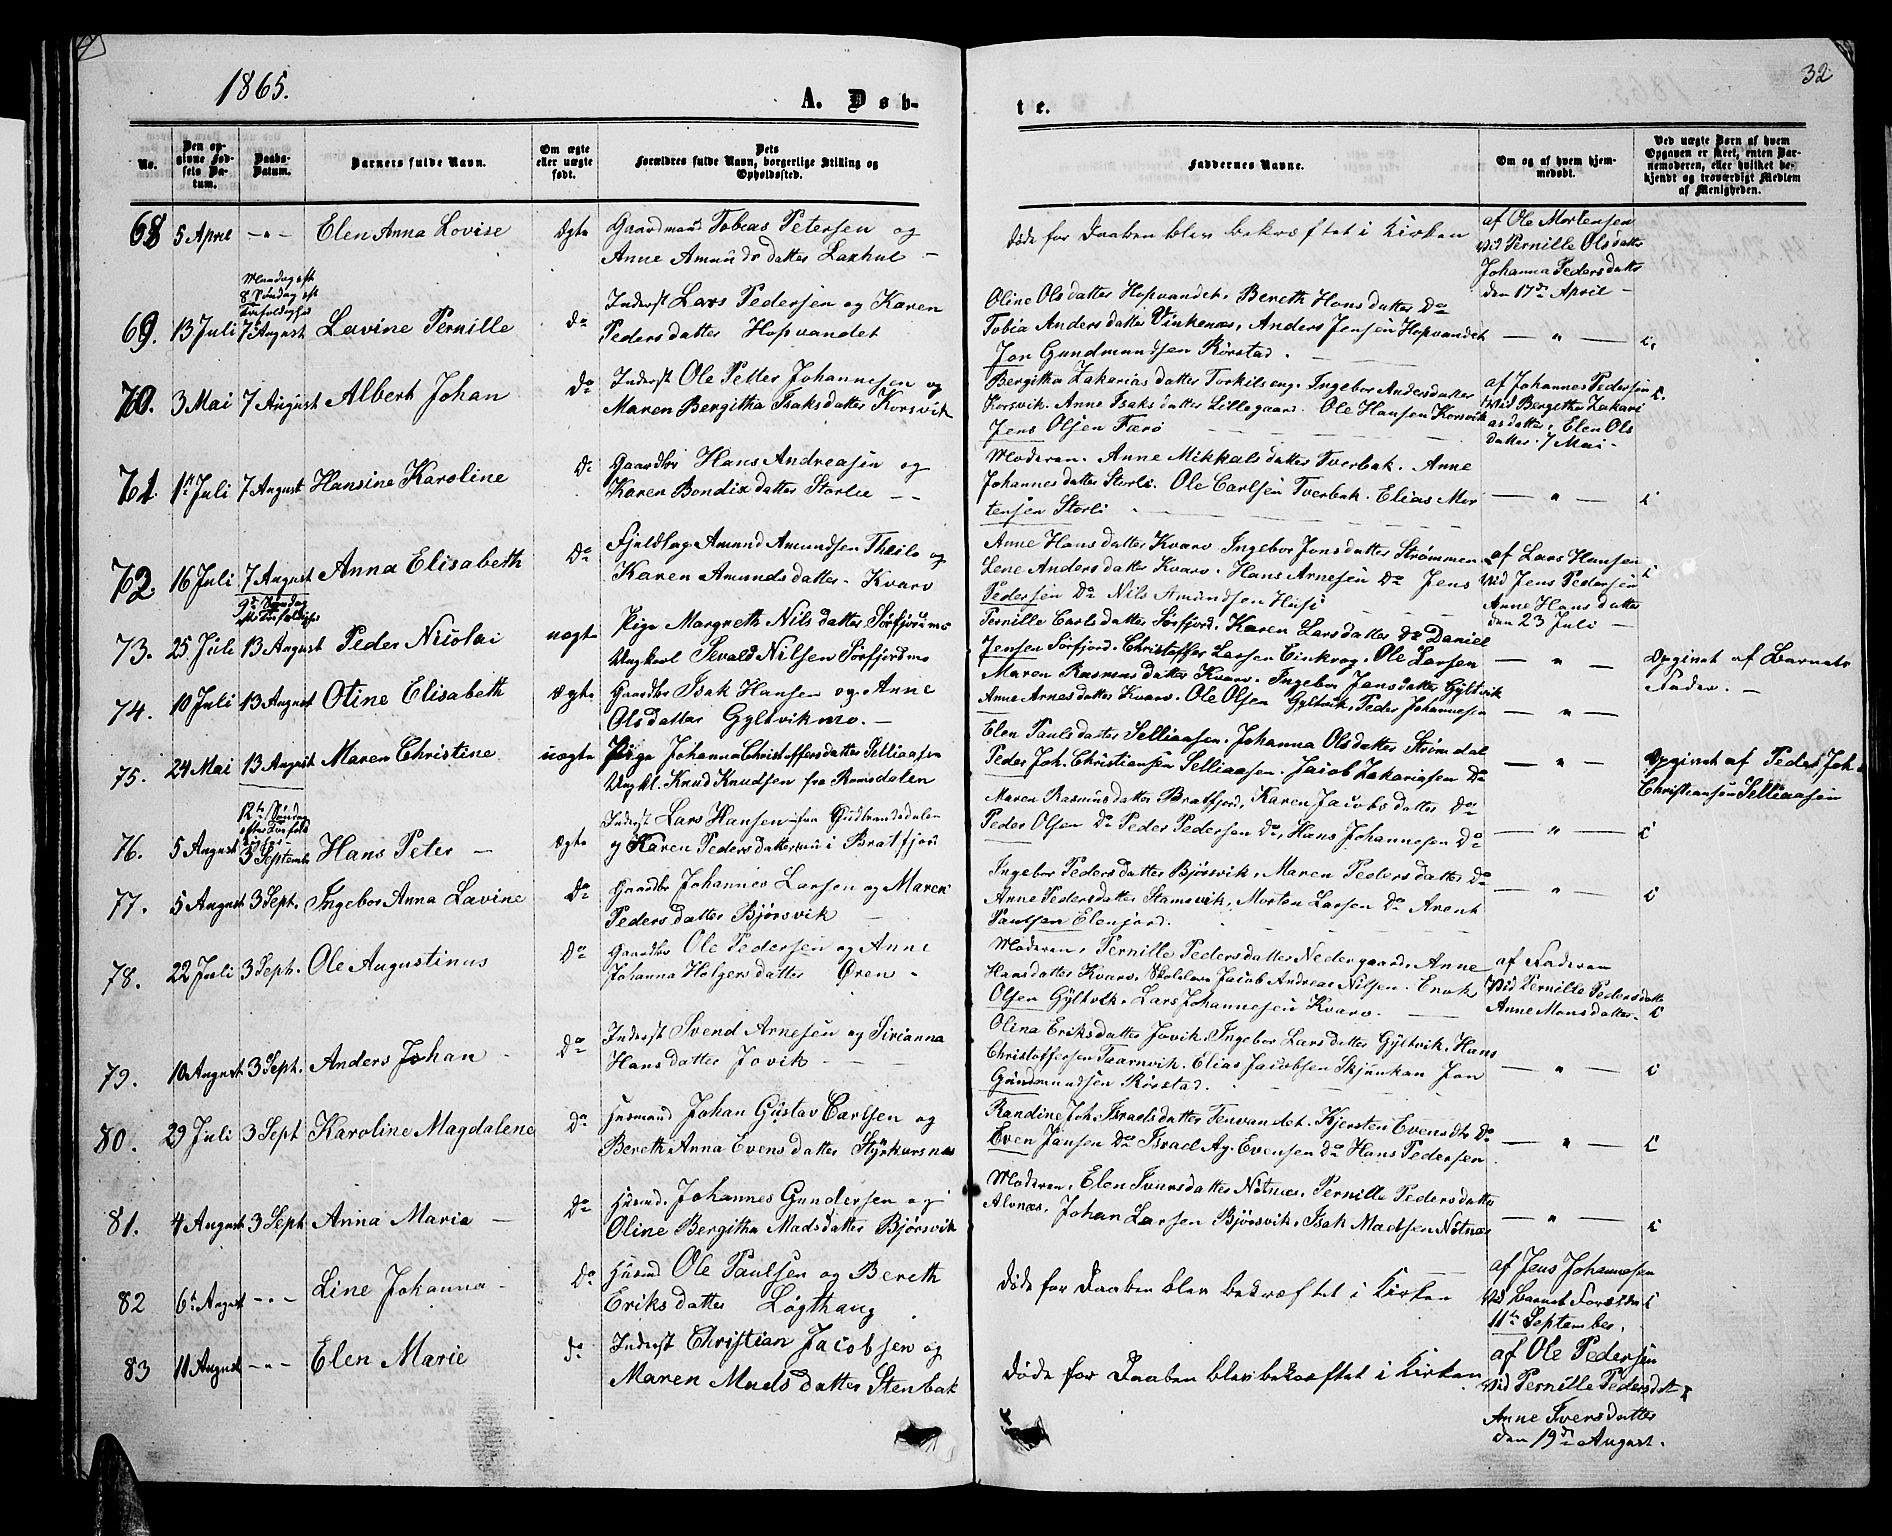 1865.
A. Døb-
te.
32
No.
Den op-
givne Fød-
sels Da-
tum.
Daabs-
Datum.
Barnets fulde Navn.
Om ægte
eller uægte
født.
Dets
Forældres fulde Navn, borgerlige Stilling og
Opholdssted.
Faddernes Navne.
Om og af hvem hjem-
medøbt.
Ved uægte Barn af hvem
Opgaven er skeet, enten Bar-
nemoderen, eller hvilket be-
kjendt og troværdigt Medlem
af Menigheden.
68 5 April -"- Elen Anna Lovise Ægte Gaardmand Tobias Petersen og
Anne Amunds datter Laxhul -
Døde før Daaben blev bekræftet i Kirken
af Ole Mortensen
Vid Pernille Olsdatter
Johanna Pedersdatter
den 17de April -
Mandag eft
8 Søndag eft
Trefoldighed
69. 13 Juli 7 August Lavine Pernille Do Inderst Lars Pedersen og Karen
Pedersdatter Hopvandet
Oline Olsdatter Hopvandet, Bereth Hansdatter Do
Tobia Andersdatter Vinkenes, Anders Jensen Hopvandet
Jon Gundmundsen Rørstad.
— " — i,
70. 3 Mai 7 August Albert Johan Do Inderst Ole Petter Johannesen og
Maren Bergitha Isaksdatter Korsvik
Bergitha Zakariasdatter Torkilseng. Ingebor Andersdatter
Korsvik. Anne Isaksdatter Lillegaard. Ole Hansen Korsvik
Jens Olsen Færø
af Johannes Pedersen i.
Vid Bergitha Zakari
asdatter, Elen Ols
datter. 7 Mai -
71. 1ste Juli 7 August Hansine Karoline Do Gaardbr Hans Andreasen og
Karen Bondixdatter Storlie - -
Moderen. Anne Mikkalsdatter Tverbak. Anne
Johannesdatter Storli. Ole Carlsen Tverbak. Elias Mor
tensen Storli
— " — i
72. 16 Juli 7 August Anna Elisabeth Do Fjeldlap Amund Amundsen Theilo og
Karen Amundsdatter - Kvarv
Anne Hansdatter Kvarv. Ingebor Jonsdatter Strømmen
Lene Andersdatter Kvarv. Hans Arnesen Do Jens
Pedersen Do Nils Amundsen Husi
af Lars Hansen i
Vid Jens Pedersen
Anne Hansdatter
den 23 Juli -
9de Søndag
eft Trefoldighed
73. 25 Juli 13 August Peder Nicolai uægte Pige Margreth Nilsdatter Sørfjordmo
Ungkarl Sevald Nilsen Sørfjordmo
Pernille Carlsdatter Sørfjord. Karen Larsdatter Do Daniel
Jensen Sørfjord. Christoffer Larsen Einkrog. Ole Larsen
— " — Opgivet af Barnets
Fader. -
74. 10 Juli 13 August Otine Elisabeth Ægte Gaardbr Isak Hansen og Anne
Olsdatter Gyltvikmo. -
Maren Rasmusdatter Kvarv. Ingebor Jensdatter Gyltvik
Anne Arnesdatter Kvarv. Ole Olsen Gyltvik. Peder Johannesen
— " —
75. 24 Mai 13 August Maren Christine uægte Pige Johanna Christoffersdatter Selliaasen
Ungkl. Knud Knudsen fra Romsdalen
Elen Paulsdatter Selliaasen. Johanna Olsdatter Strømdal
Peder Joh. Christiansen Selliaasen. Jacob Zakariasen Do
— " — Opgivet af Peder Joh.
Christiansen Selliaasen
12te Søndag
efter Trefold
76. 5 August 3 September Hans Peter - Ægte Inderst Lars Hansen fra Gudbrandsdalen
og Karen Pedersdatter nu i Bratfjord
Maren Rasmusdatter Bratfjord, Karen Jacobsdatter Do
Peder Olsen Do Peder Pedersen Do, Hans Johannesen Do
— " — i
77. 5 August 3 Sept. Ingebor Anna Lavine Do Gaardbr Johannes Larsen og Maren
Pedersdatter Bjørsvik -
Ingebor Pedersdatter Bjørsvik, Maren Pedersdatter Do
Anne Pedersdatter Stamsvik, Morten Larsen Do Arent
Paulsen Elenjord.
— " — i
78. 22 Juli 3 Sept. Ole Augustinus Do Gaardbr Ole Pedersen og Anne
Johanna Holgersdatter Øren -
Moderen, Pernille Pedersdatter Nedergaard, Anne
Hansdatter Kvarv, Skolelærer Jacob Andreas Nilsen. Enok
Olsen Gyltvik. Lars Johannesen Kvarv. -
af Faderen
Vid Pernille Pedersdatter
Anne Monsdatter. i
79. 10 August 3 Sept. Anders Johan - Do Inderst Svend Arnesen og Sirianna
Hansdatter Jovik -
Olina Eriksdatter Jovik, Ingebor Larsdatter Gyltvik, Hans
Christoffersen Taarnvik. Elias Jacobsen Skjunkan Jon
Gundmundsen Rørstad.
— " — i
80. 29 Juli 3 Sept Karoline Magdalene Do Husmand Johan Gustav Carlsen og
Bereth Anna Evensdatter Styrkersnes
Randine Joh. Israelsdatter Tenvandet. Kjersten Evensdtr Do
Even Jansen Do Israel Ag. Evensen Do Hans Pedersen
— " — i
81. 4 August 3 Sept Anna Maria - Do Husmd. Johannes Gundersen og
Oline Bergitha Madsdatter Bjørsvik
Moderen, Elen Iversdatter Nøtnes, Pernille Pedersdatter
Alvnæs. Johan Larsen Bjørsvik. Isak Madsen Nøtnes
— " — i
82 6te August -"- Line Johanna - Do Husmd Ole Paulsen og Bereth
Eriksdatter Løgthaug
Døde før Daaben blev bekræftet i Kirken
af Jens Johannesen
Vid Barnets Forældre i
11te September,
83 11 August -"- Elen Marie do Inderst Christian Jacobsen og
Maren Madsdatter Stenbak
Døde før Daaben blev bekræftet i Kirken
af Ole Pedersen
Vid Pernille Pedersdat i
Anne Iversdatter
den 19de August.